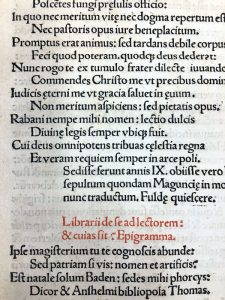 Polectes fungi prelulis officio:
In quo nec meritum vitę nec dogma repertum est
Nec pastoris opus iure beneplacitum.
Promptus erat animus: sed tardans debile corpus
Feci quod poteram, quodq; deus dederat:
Nunc rogo te ex tumulo frater dilecte iuuando
Commendes Christo me vt precibus domino
Iudicis ęterni me vt gracia saluet in ęuum.
Non meritum aspiciens: sed pietatis opus.
Rabani nempe mihi nomen: lectio dulcis
Diuinę legis semper vbiq; fuit.
Cui deus omnipotens tribuas celestia regna
Et veram requiem semper in arce poli.
Sedisse ferunt annis IX. obiisse vero
sepultum quondam Maguncię in mo
nunc traductum. Fuldę quiescere.
Librarii de se ad lectorem:
& cuias sit: Epigramma.
Ipse magisterium tu te cognoscis abunde:
Sed patriam si vis: nomen & artificis:
Est natale solum Baden: sedes mihi phorcys:
Dicor & Anshelmi bibliopola Thomas.